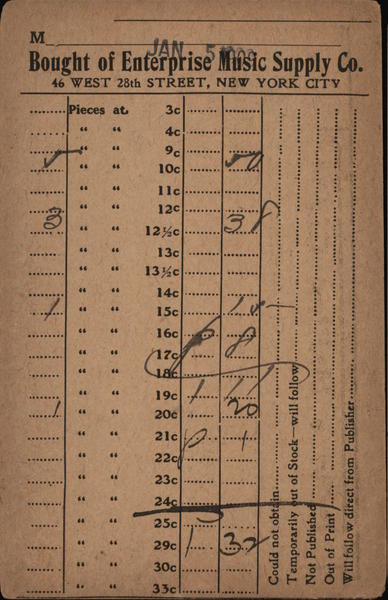 M
JAN 5
Bought of Enterprise Music Supply Co.
46 WEST 28th STREET, NEW YORK CITY
Pieces at. 3c
" " 4c
" " 9c
5 " " 10c 50
" " 11c
" " 12c
3 " " 12½c 38
" " 13c
" " 13½c
" " 14c
1 " " 15c 15
" " 16c
" " 17c
" " 18c
" " 19c
1 " " 20c 20
" " 21c
" " 22c
" " 23c
" " 24c
" " 25c
" " 29c 1 32
" " 30c
" " 33c
Could not obtain
Temporarily out of Stock will follow
Not Published
Out of Print
Will follow direct from Publisher